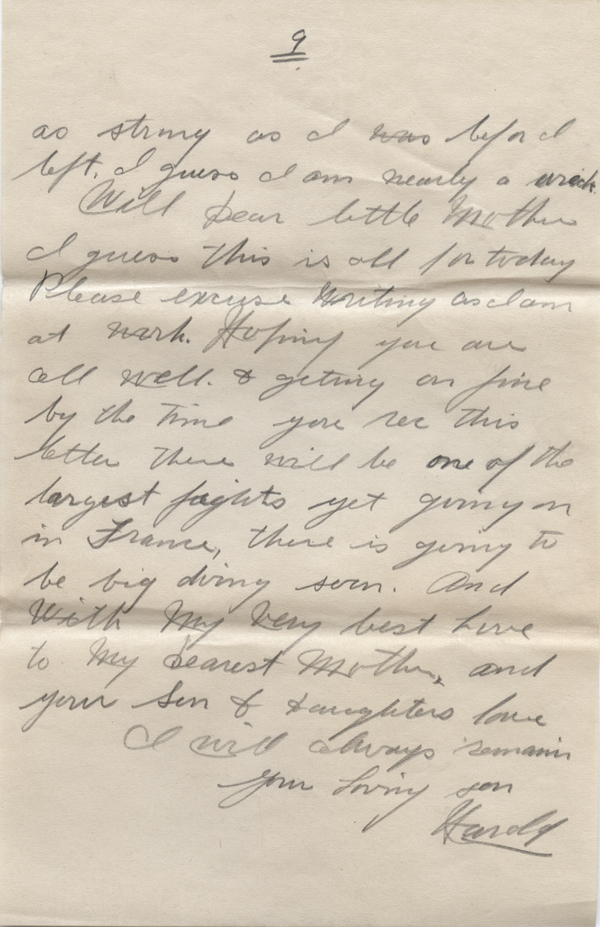 9
as strong as I was befor I
left, I guess I am nearly a wreck.
Well Dear little Mother
I guess this is all for today
Please excuse Writing as I am
at work. Hoping you are
all well. & getting on fine
by the time you rec this
letter there will be one of the
largest faights yet going on
in France, there is going to
be big doing soon. And
With My Very best Love
to My Dearest Mother, and
your Son & Daughters love
I will always remain
your loving son
Harold